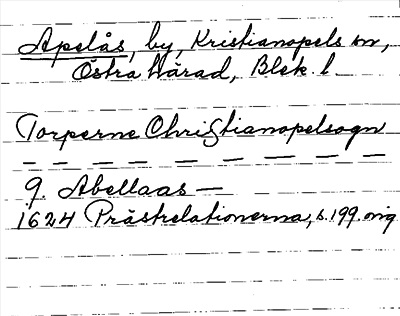 Apelås, by, Kristianopels sn,
Östra härad, Blek. l.
Torperne Christianopelsogn
— — — — — — — —
9. Abellaas —
1624 Prästrelationerna, s. 199. orig